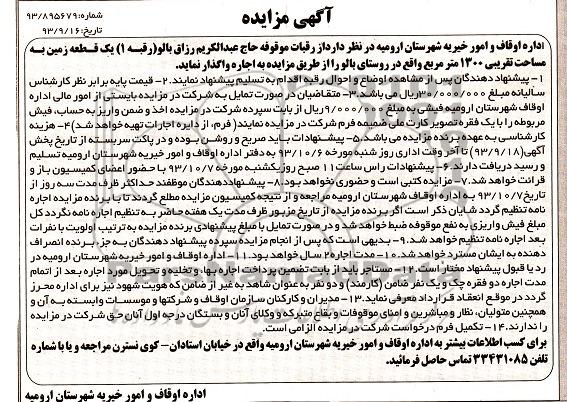 آگهی مزایده
شماره: ۹۳/۸۹۵۶۷۹
تاریخ: ۹۳/۹/۱۶
اداره اوقاف و امور خیریه شهرستان ارومیه در نظر دارد از رقبات موقوفه حاج عبدالکریم رزاق بالو (رقبه ۱) یک قطعه زمین به
مساحت تقریبی ۱۳۰۰ متر مربع واقع در روستای بالو را از طریق مزایده به اجاره واگذار نماید.
۱- پیشنهاد دهندگان پس از مشاهده اوضاع و احوال رقبه اقدام به تسلیم پیشنهاد نمایند. ۲- قیمت پایه برابر نظر کارشناس
سالیانه مبلغ ۳۰/۰۰۰/۰۰۰ ریال می باشد. ۳- متقاضیان در صورت تمایل به شرکت در مزایده بایستی از امور مالی اداره
اوقاف شهرستان ارومیه فیشی به مبلغ ۹/۰۰۰/۰۰۰ ریال از بابت سپرده شرکت در مزایده اخذ و ضمن واریز به حساب، فیش
مربوطه را با یک فقره تصویر کارت ملی ضمیمه فرم شرکت در مزایده نمایند (فرم، از دایره اجارات تهیه خواهد شد) ۴- هزینه
کارشناسی به عهده برنده مزایده می باشد. ۵- پیشنهادات باید صریح و روشن بوده و در پاکت سربسته از تاریخ پخش
آگهی (۹۳/۹/۱۸) تا آخر وقت اداری روز شنبه مورخه ۹۳/۱۰/۶ به دفتر اداره اوقاف و امور خیریه شهرستان ارومیه تسلیم
و رسید دریافت دارند. ۶- پیشنهادات راس ساعت ۱۱ صبح روز یکشنبه مورخه ۹۳/۱۰/۷ با حضور اعضای کمیسیون باز و
قرائت خواهد شد. ۷- مزایده کتبی است و حضوری نخواهد بود. ۸- پیشنهاد دهندگان موظفند حداکثر ظرف مدت سه روز از
تاریخ ۹۳/۱۰/۷ به اداره اوقاف شهرستان ارومیه مراجعه و از نتیجه کمیسیون مزایده مطلع گردند تا با برنده مزایده اجاره
نامه تنظیم گردد شایان ذکر است اگر برنده مزایده از تاریخ مزبور ظرف مدت یک هفته حاضر به تنظیم اجاره نامه نگردد کل
مبلغ فیش واریزی به نفع موقوفه ضبط خواهد شد و در صورت تمایل با مبلغ پیشنهادی برنده مزایده به ترتیب اولویت با نفرات
بعد اجاره نامه تنظیم خواهد شد. ۹- بدیهی است که پس از انجام مزایده سپرده پیشنهاد دهندگان به جز برنده انصراف
دهنده به ایشان مسترد خواهد شد. ۱۰- مدت اجاره ۲ سال خواهد بود. ۱۱- اداره اوقاف و امور خیریه شهرستان ارومیه در
رد یا قبول پیشنهاد مختار است. ۱۲- مستاجر باید از بابت تضمین پرداخت اجاره بها، و تخلیه و تحویل مورد اجاره بعد از اتمام
مدت اجاره دو فقره چک و یک نفر ضامن (کارمند) و دو نفر به عنوان شاهد به غیر از ضامن که هویت شهود نیز برای اداره محرز
گردد در موقع انعقاد قرارداد معرفی نماید. ۱۳- مدیران و کارکنان سازمان اوقاف و شرکتها و موسسات وابسته به آن و
همچنین متولیان، نظار و مباشرین و امنای موقوفات و بقاع متبرکه و وکلای آنان و بستگان درجه اول آنان حق شرکت در مزایده
را ندارند. ۱۴- تکمیل فرم درخواست شرکت در مزایده الزامی است.
برای کسب اطلاعات بیشتر به اداره اوقاف و امور خیریه شهرستان ارومیه واقع در خیابان استادان - کوی نسترن مراجعه و یا با شماره
تلفن ۳۳۴۳۱۰۸۵ تماس حاصل فرمائید.
اداره اوقاف و امور خیریه شهرستان ارومیه